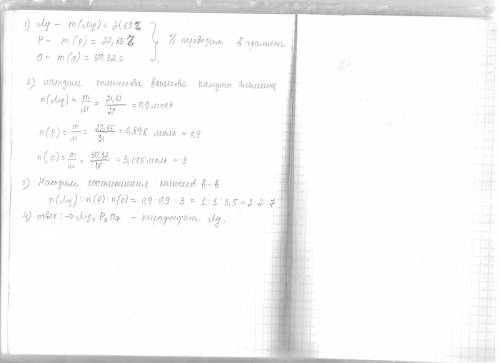 1) Mg – m(Mg) = 21,83 %
P – m(P) = 27,85 % } % переводим в граммы
O – m(O) = 50,32 г
2) находим количества вещества каждого элемента
n(Mg) = m/M = 21,83/24 = 0,9 моль
n(P) = m/M = 27,85/31 = 0,898 моль ~ 0,9
n(O) = m/M = 50,32/16 = 3,145 моль ~ 3
3) Находим соотношения количеств в-в
n(Mg) : n(P) : n(O) = 0,9 : 0,9 : 3 = 1 : 1 : 3,5 = 2 : 2 : 7
4) ответ: → Mg2P2O7 – пирофосфат Mg.